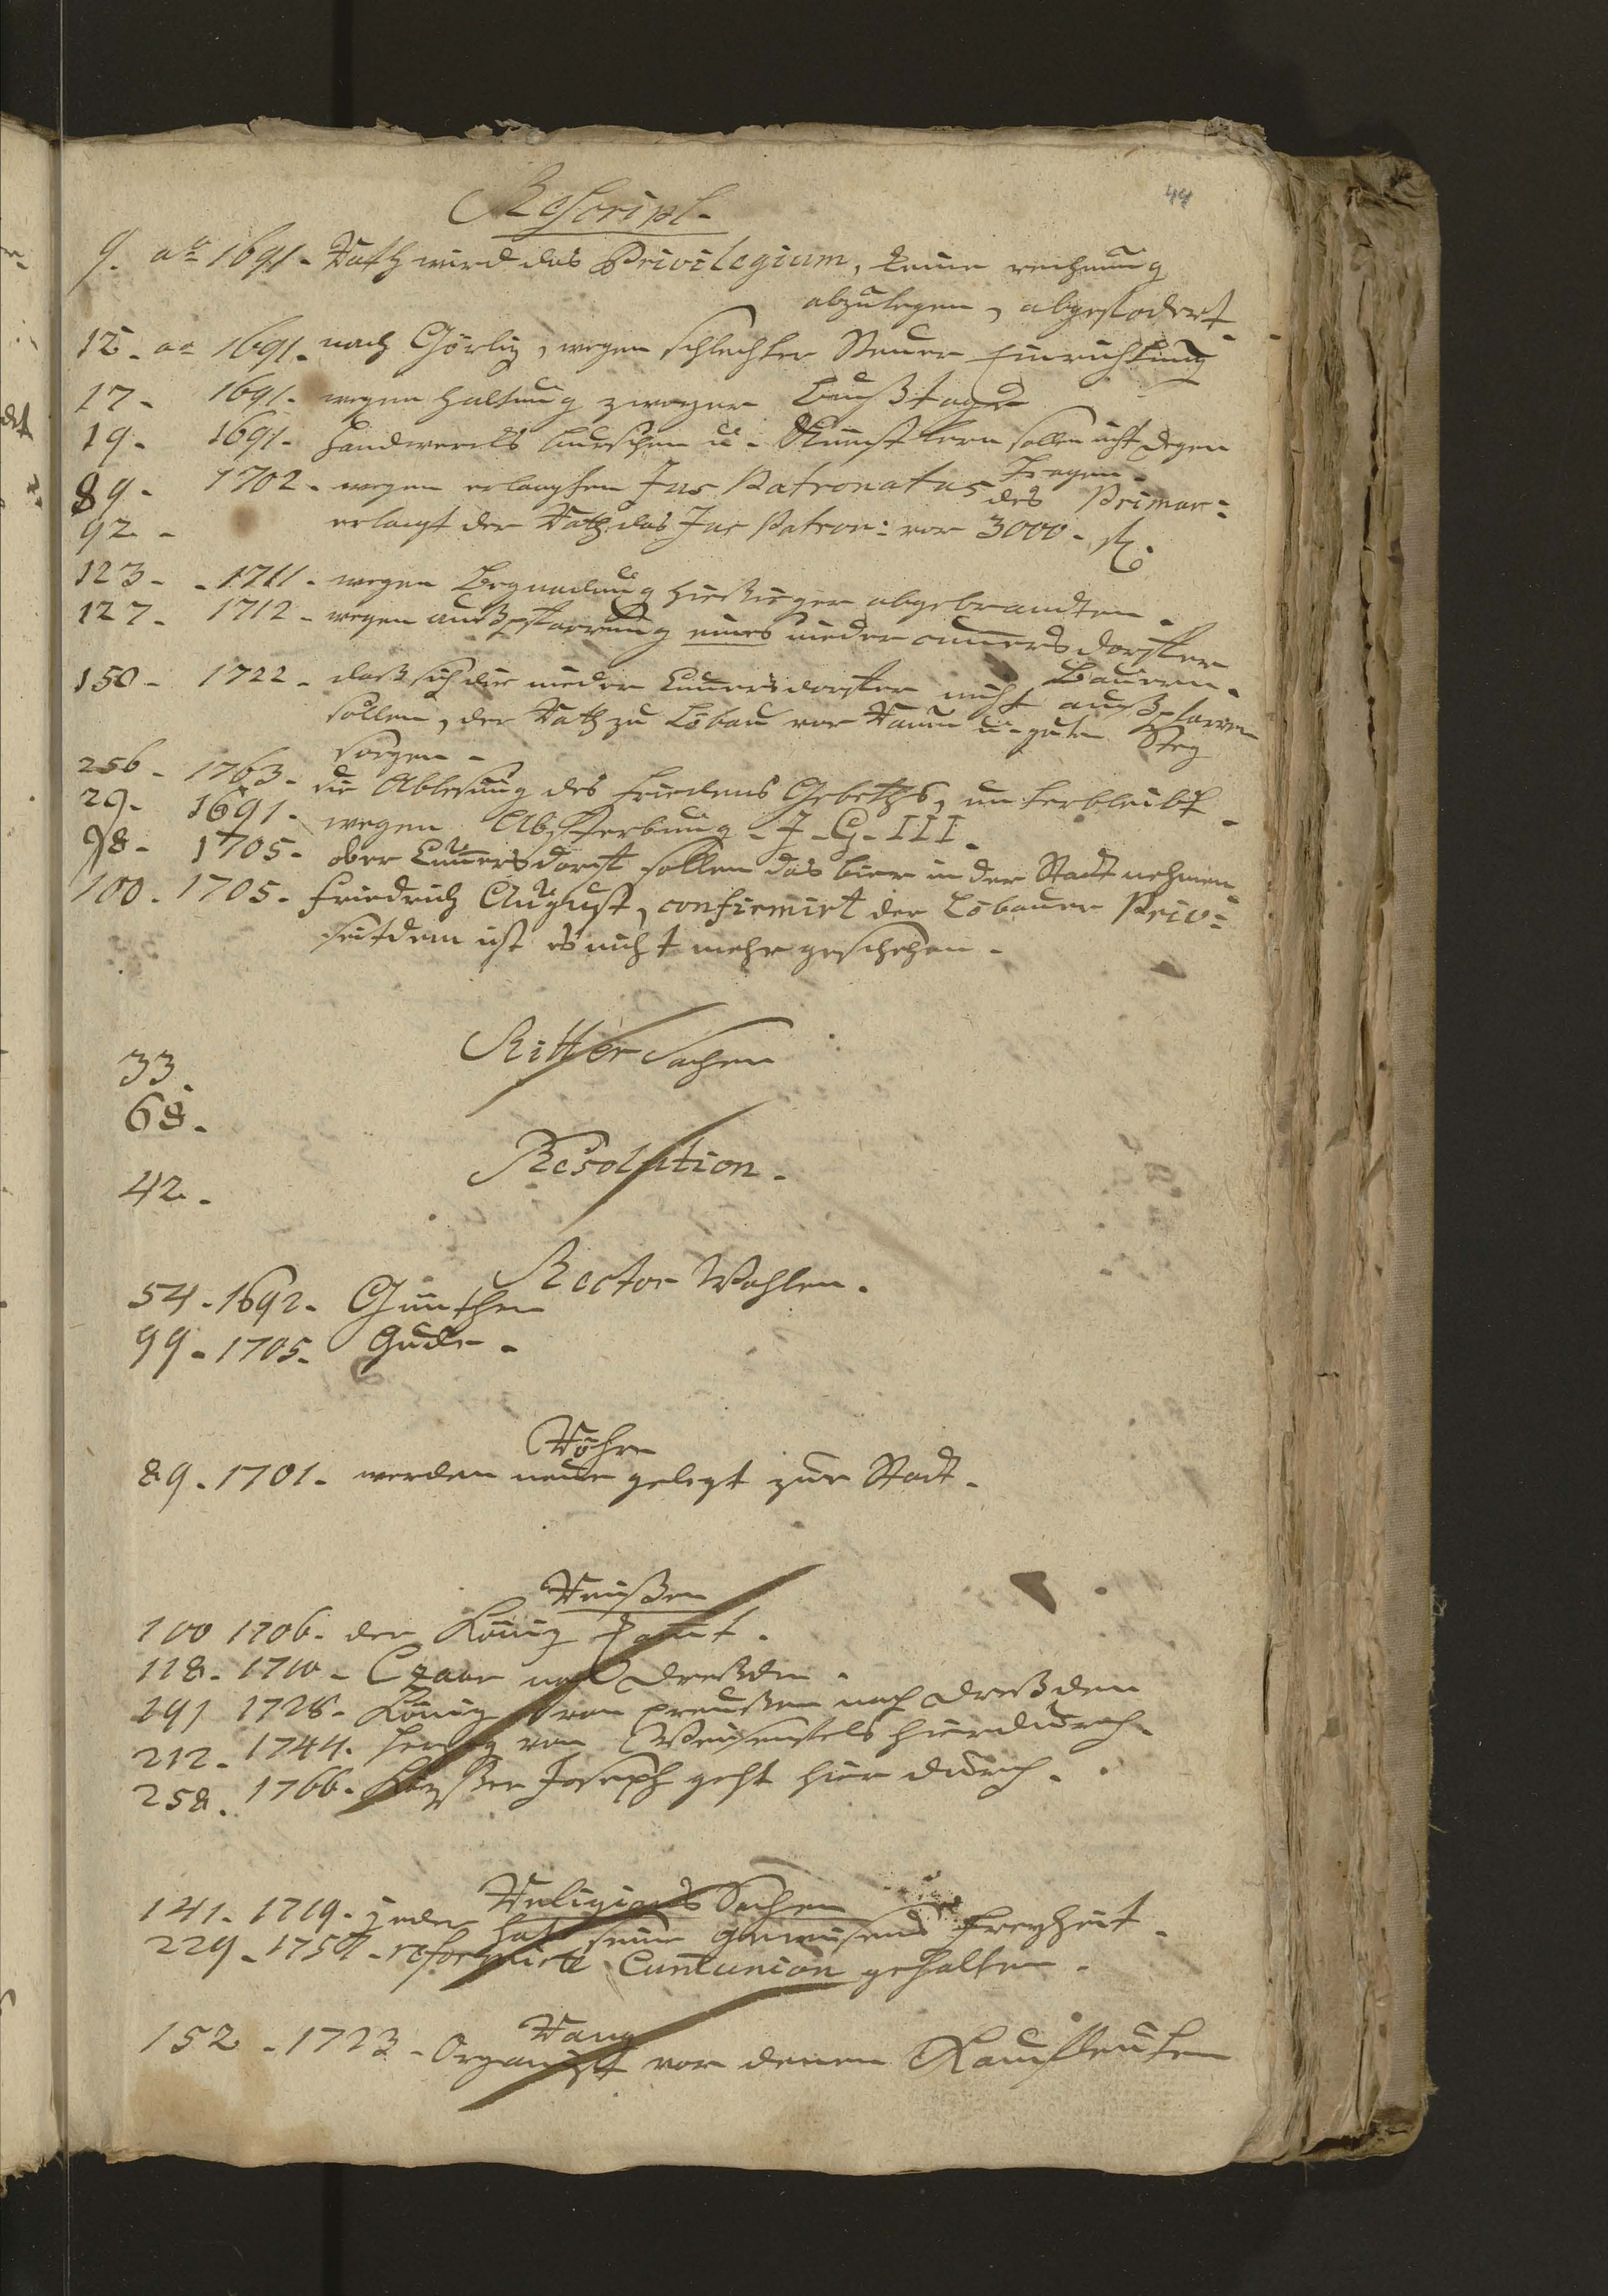 44
Rescript.
9. ao 1691. Rath wird das Privilegium, keine rechnung
abzulegen, abgefodert.
12. ao 1691. nach Görliz, wegen schlechter Steuer Einrichtung
17. 1691. wegen Haltung zweyer Bußtage
19. 1691. Handwercks burschen u. Künstlern sollen nicht Degen
tragen.
89. 1702. wegen erlangten Jus Patronatus des Primar:
92. erlangt der Rath das Jus Patron: vor 3000. rh.
123. 1711. wegen Begnadung hiesieger abgebrandten.
127. 1712. wegen außpfarrung eines nieder cunnersdorfter
Bauern.
150. 1722. daß sich die nieder Cunnersdorfter nicht außpfarren
sollen, der Rath zu Löbau vor Raum u. guten Steg
sorgen.
256. 1763. die Ablesung des Friedens Gebeths, unterbleibt.
29. 1691. wegen Absterbung J. G. III.
98. 1705. ober Cunnersdorf sollen das bier in der Stadt nehmen
100. 1705. Friedrich August, confirmirt der Löbauer Priv:
seitdem ist es nicht mehr geschehen.
Ritter Sachen
33.
68.
Resolution.
42.
Rector Wahlen.
54. 1692. Günther
99. 1705. Gude.
Röhre
89. 1701. werden neue gelegt zur Stadt.
Reißen
100 1706. der König komt.
118. 1710. Czaar nach Dreßden.
191 1728. König von preußen nach Dreßden
212. 1744. Herzog von Weisenfels hierdurch.
258. 1766. Kayßer Joseph geht hier durch.
Religions Sachen
141. 1719. jeder hat seine gewissens Freyheit.
229. 1750. reformirte Cummunion gehalten.
Rang
152. 1723. Organist vor denen Kaufleuten